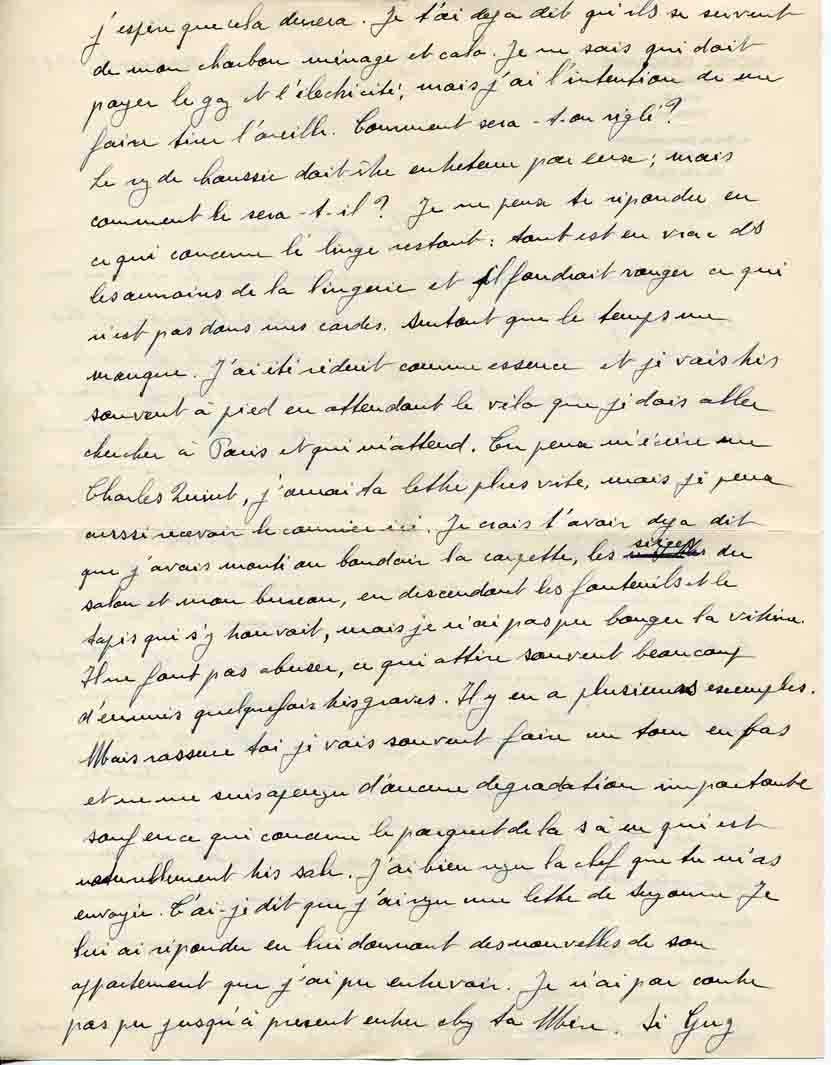 j'espère que cela durera. Je t'ai deja dit qu'ils se servent
de mon charbon ménage et cata. Je ne sais qui doit
payer le gaz et l'électricité, mais j'ai l'intention de me
faire tirer l'oreille. Comment sera-t-on réglé ?
Le rez de chaussée doit être entretenu par eux ; mais
comment le sera-t-il ? Je ne peux te répondre en
ce qui concerne le linge restant : tout est en vrac ds
les armoires de la lingerie et il faudrait ranger ce qui
n'est pas dans mes cordes. Surtout que le temps me
manque. J'ai été réduit comme essence et je vais très
souvent à pied en attendant le vélo que je dois aller
chercher à Paris et qui m'attend. Tu peux m'écrire rue
Charles Quint, j'aurai ta lettre plus vite, mais je peux
aussi recevoir le courrier ici. Je crois t'avoir deja dit
que j'avais monté au boudoir la carpette, les sièges du
salon et mon bureau, en descendant les fauteuils et le
tapis qui s'y trouvait, mais je n'ai pas pu bouger la vitrine.
Il ne faut pas abuser, ce qui attire souvent beaucoup
d'ennuis quelquefois très graves. Il y en a plusieurs exemples.
Mais rassure toi je vais souvent faire un tour en bas
et ne me suis aperçu d'aucune degradation importante
sauf en ce qui concerne le parquet de la s à m qui est
naturellement très sale. J'ai bien reçu la clef que tu m'as
envoyée. T'ai-je dit que j'ai reçu une lettre de Suzanne Je
lui ai répondu en lui donnant des nouvelles de son
appartement que j'ai pu entrevoir. Je n'ai par contre
pas pu jusqu'à present entrer chez ta Mère. Si Guy